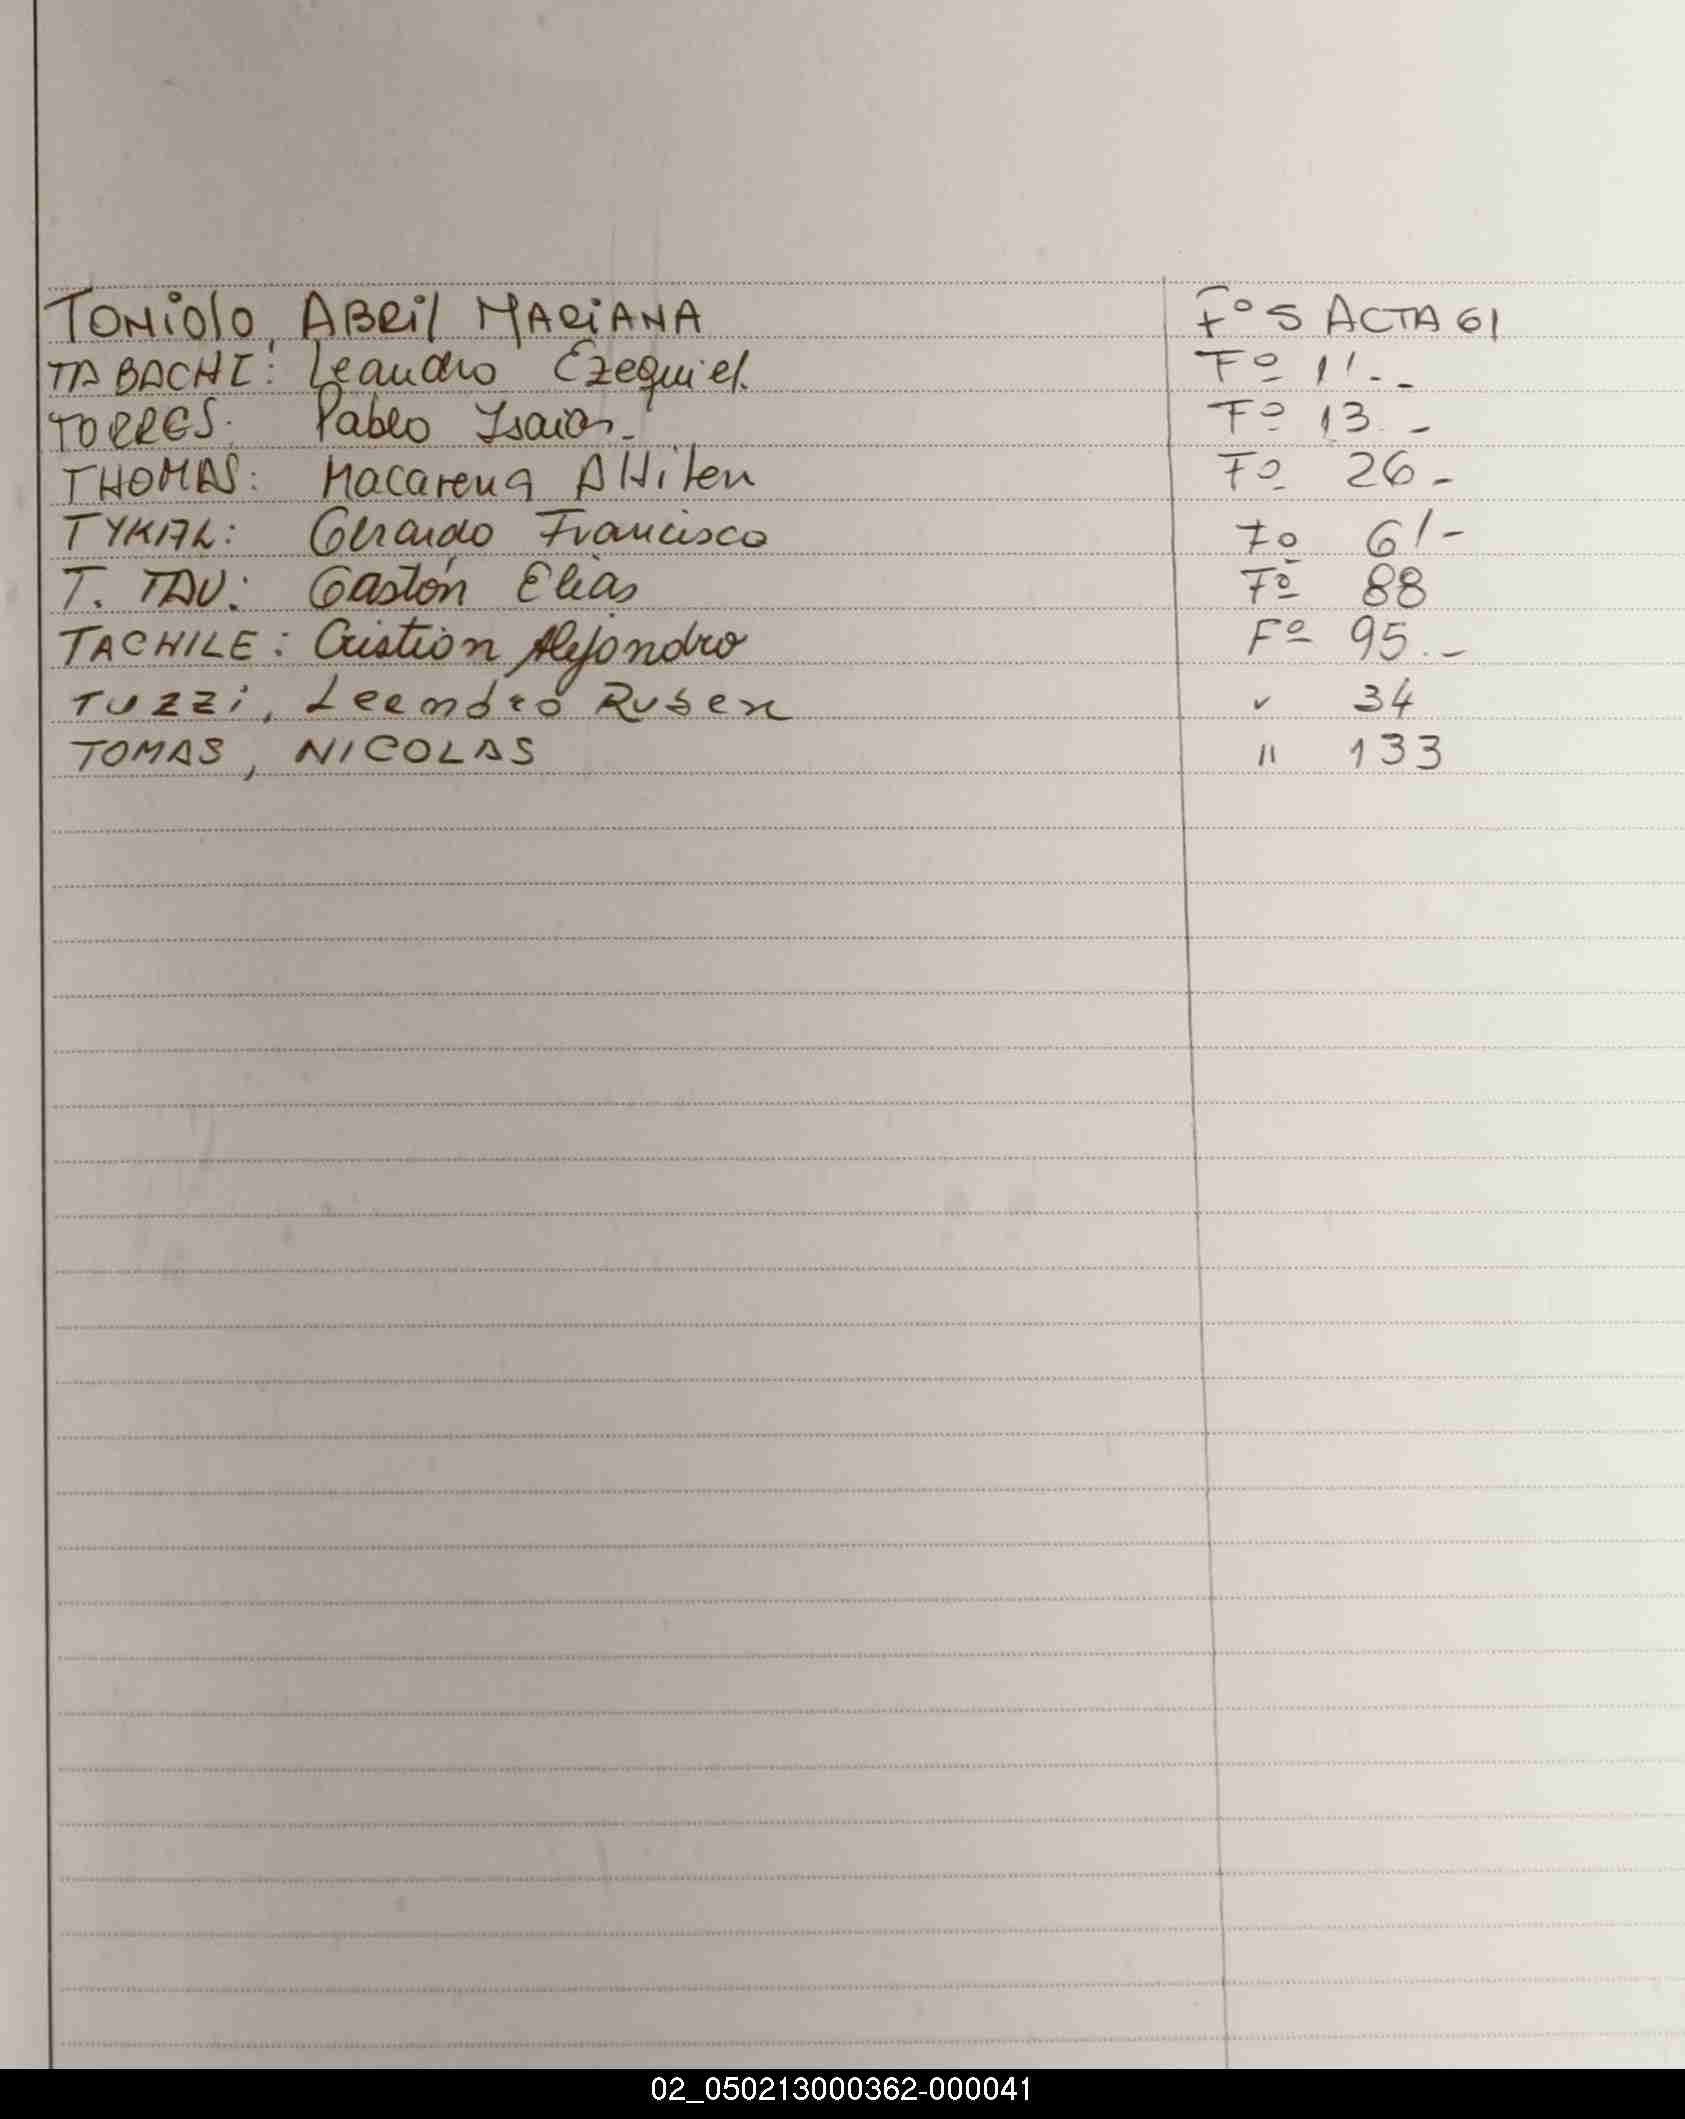 TONiOlO, ABRil MARiANA F° 5 ACTA 61
TABACHI: Leandro Ezequiel. Fº 11.-
TORRES: Pablo Isaias.- Fº 13.-
THOMAS: Macarena Fº 26.-
TYKAL: Gerardo Francisco Fº 61-
T. TAU: Gastón Elias Fº 88
TACHILE: Cristian Alejandro Fº 95.-
TUZZi, Leandro Ruben " 34
TOMAS, NICOLAS " 133
02_050213000362-000041